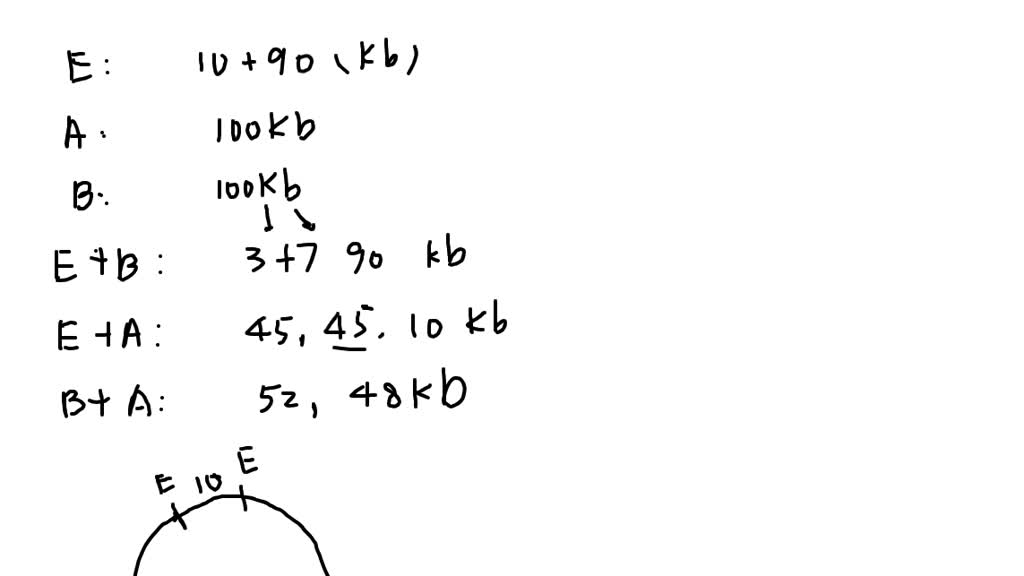 E: 10 + 90 (Kb)
A: 100Kb
B: 100Kb
E + B: 3 + 7 90 kb
E + A: 45, 45. 10 Kb
B + A: 52, 48Kb
E 10 E